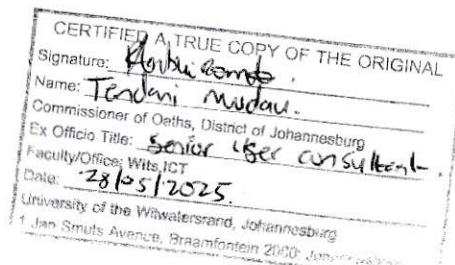 CERTIFIED A TRUE COPY OF THE ORIGINAL
Signature:
Name: Tendani Mudau.
Commissioner of Oaths, District of Johannesburg
Ex Officio Title: Senior User Consultant.
Faculty/Office: Wits, ICT
Date: 28/05/2025.
University of the Witwatersrand, Johannesburg
1 Jan Smuts Avenue, Braamfontein 2000